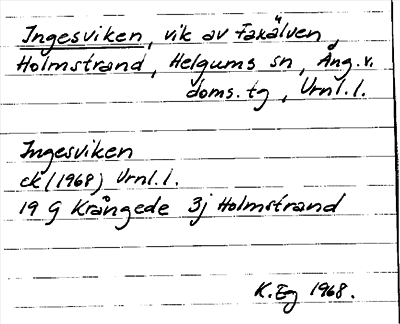 Ingesviken, vik av Faxälven,
Holmstrand, Helgums sn, Ång.v.
doms.tg, Vrnl.l.
Ingesviken
ek (1968) Vrnl.l.
19 G Krångede 3j Holmstrand
K.Eg 1968.